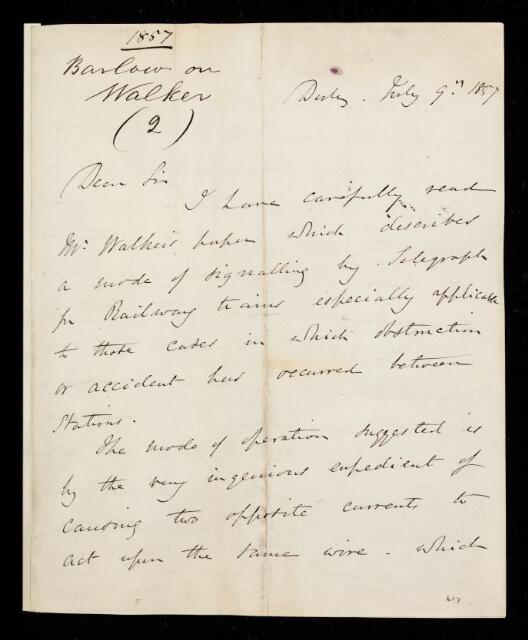 1857
Barlow on
Walker
(2)
Derby. July 9th 1857
Dear Sir
I have carefully read
Mr. Walker's paper which describes
a mode of signalling by Telegraph
for Railway trains especially applicable
to those cases in which obstruction
or accident has occurred between
Stations.
The mode of operation suggested is
by the very ingenious expedient of
causing two opposite currents to
act upon the same wire - which
617